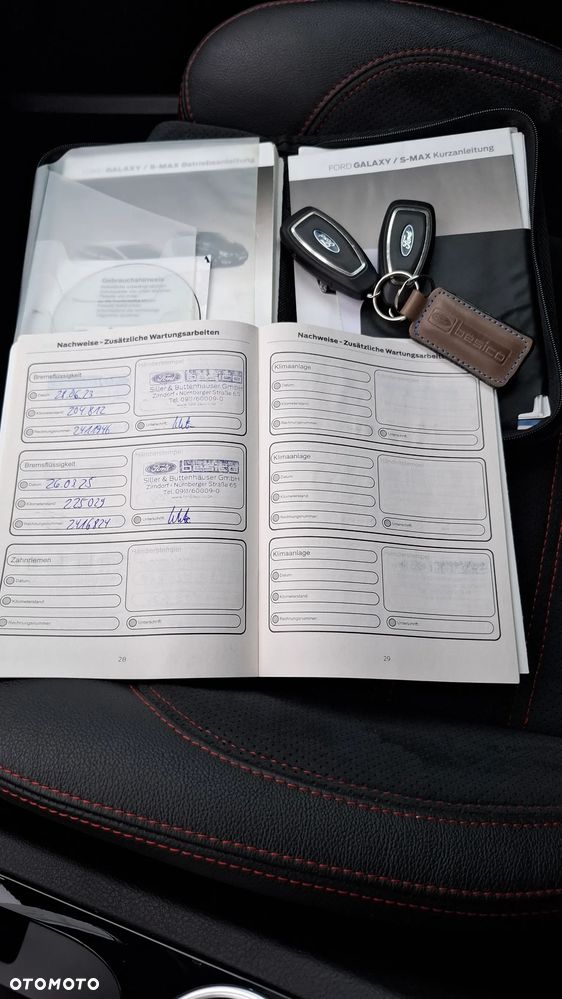 FORD GALAXY / S-MAX Betriebsanleitung
FORD GALAXY / S-MAX Kurzanleitung
Gebrauchshinweise
Ford
Ford
basico
Nachweise - Zusätzliche Wartungsarbeiten
Bremsflüssigkeit
Datum: 28.06.23
Kilometerstand: 204812
Rechnungsnummer: 2411946
Händlerstempel
Ford
Siller & Buttenhauser GmbH
Zirndorf · Nürnberger Straße 65
Tel. 0911/60009-0
Unterschrift:
Bremsflüssigkeit
Datum: 26.03.25
Kilometerstand: 225029
Rechnungsnummer: 2416824
Händlerstempel
Ford
Siller & Buttenhauser GmbH
Zirndorf · Nürnberger Straße 65
Tel. 0911/60009-0
Unterschrift:
Zahnriemen
Datum:
Kilometerstand:
Rechnungsnummer:
Händlerstempel
Unterschrift:
28
Nachweise - Zusätzliche Wartungsarbeiten
Klimaanlage
Datum:
Kilometerstand:
Rechnungsnummer:
Unterschrift:
Klimaanlage
Datum:
Kilometerstand:
Rechnungsnummer:
Händlerstempel
Unterschrift:
Klimaanlage
Datum:
Kilometerstand:
Rechnungsnummer:
Händlerstempel
Unterschrift:
29
OTOMOTO